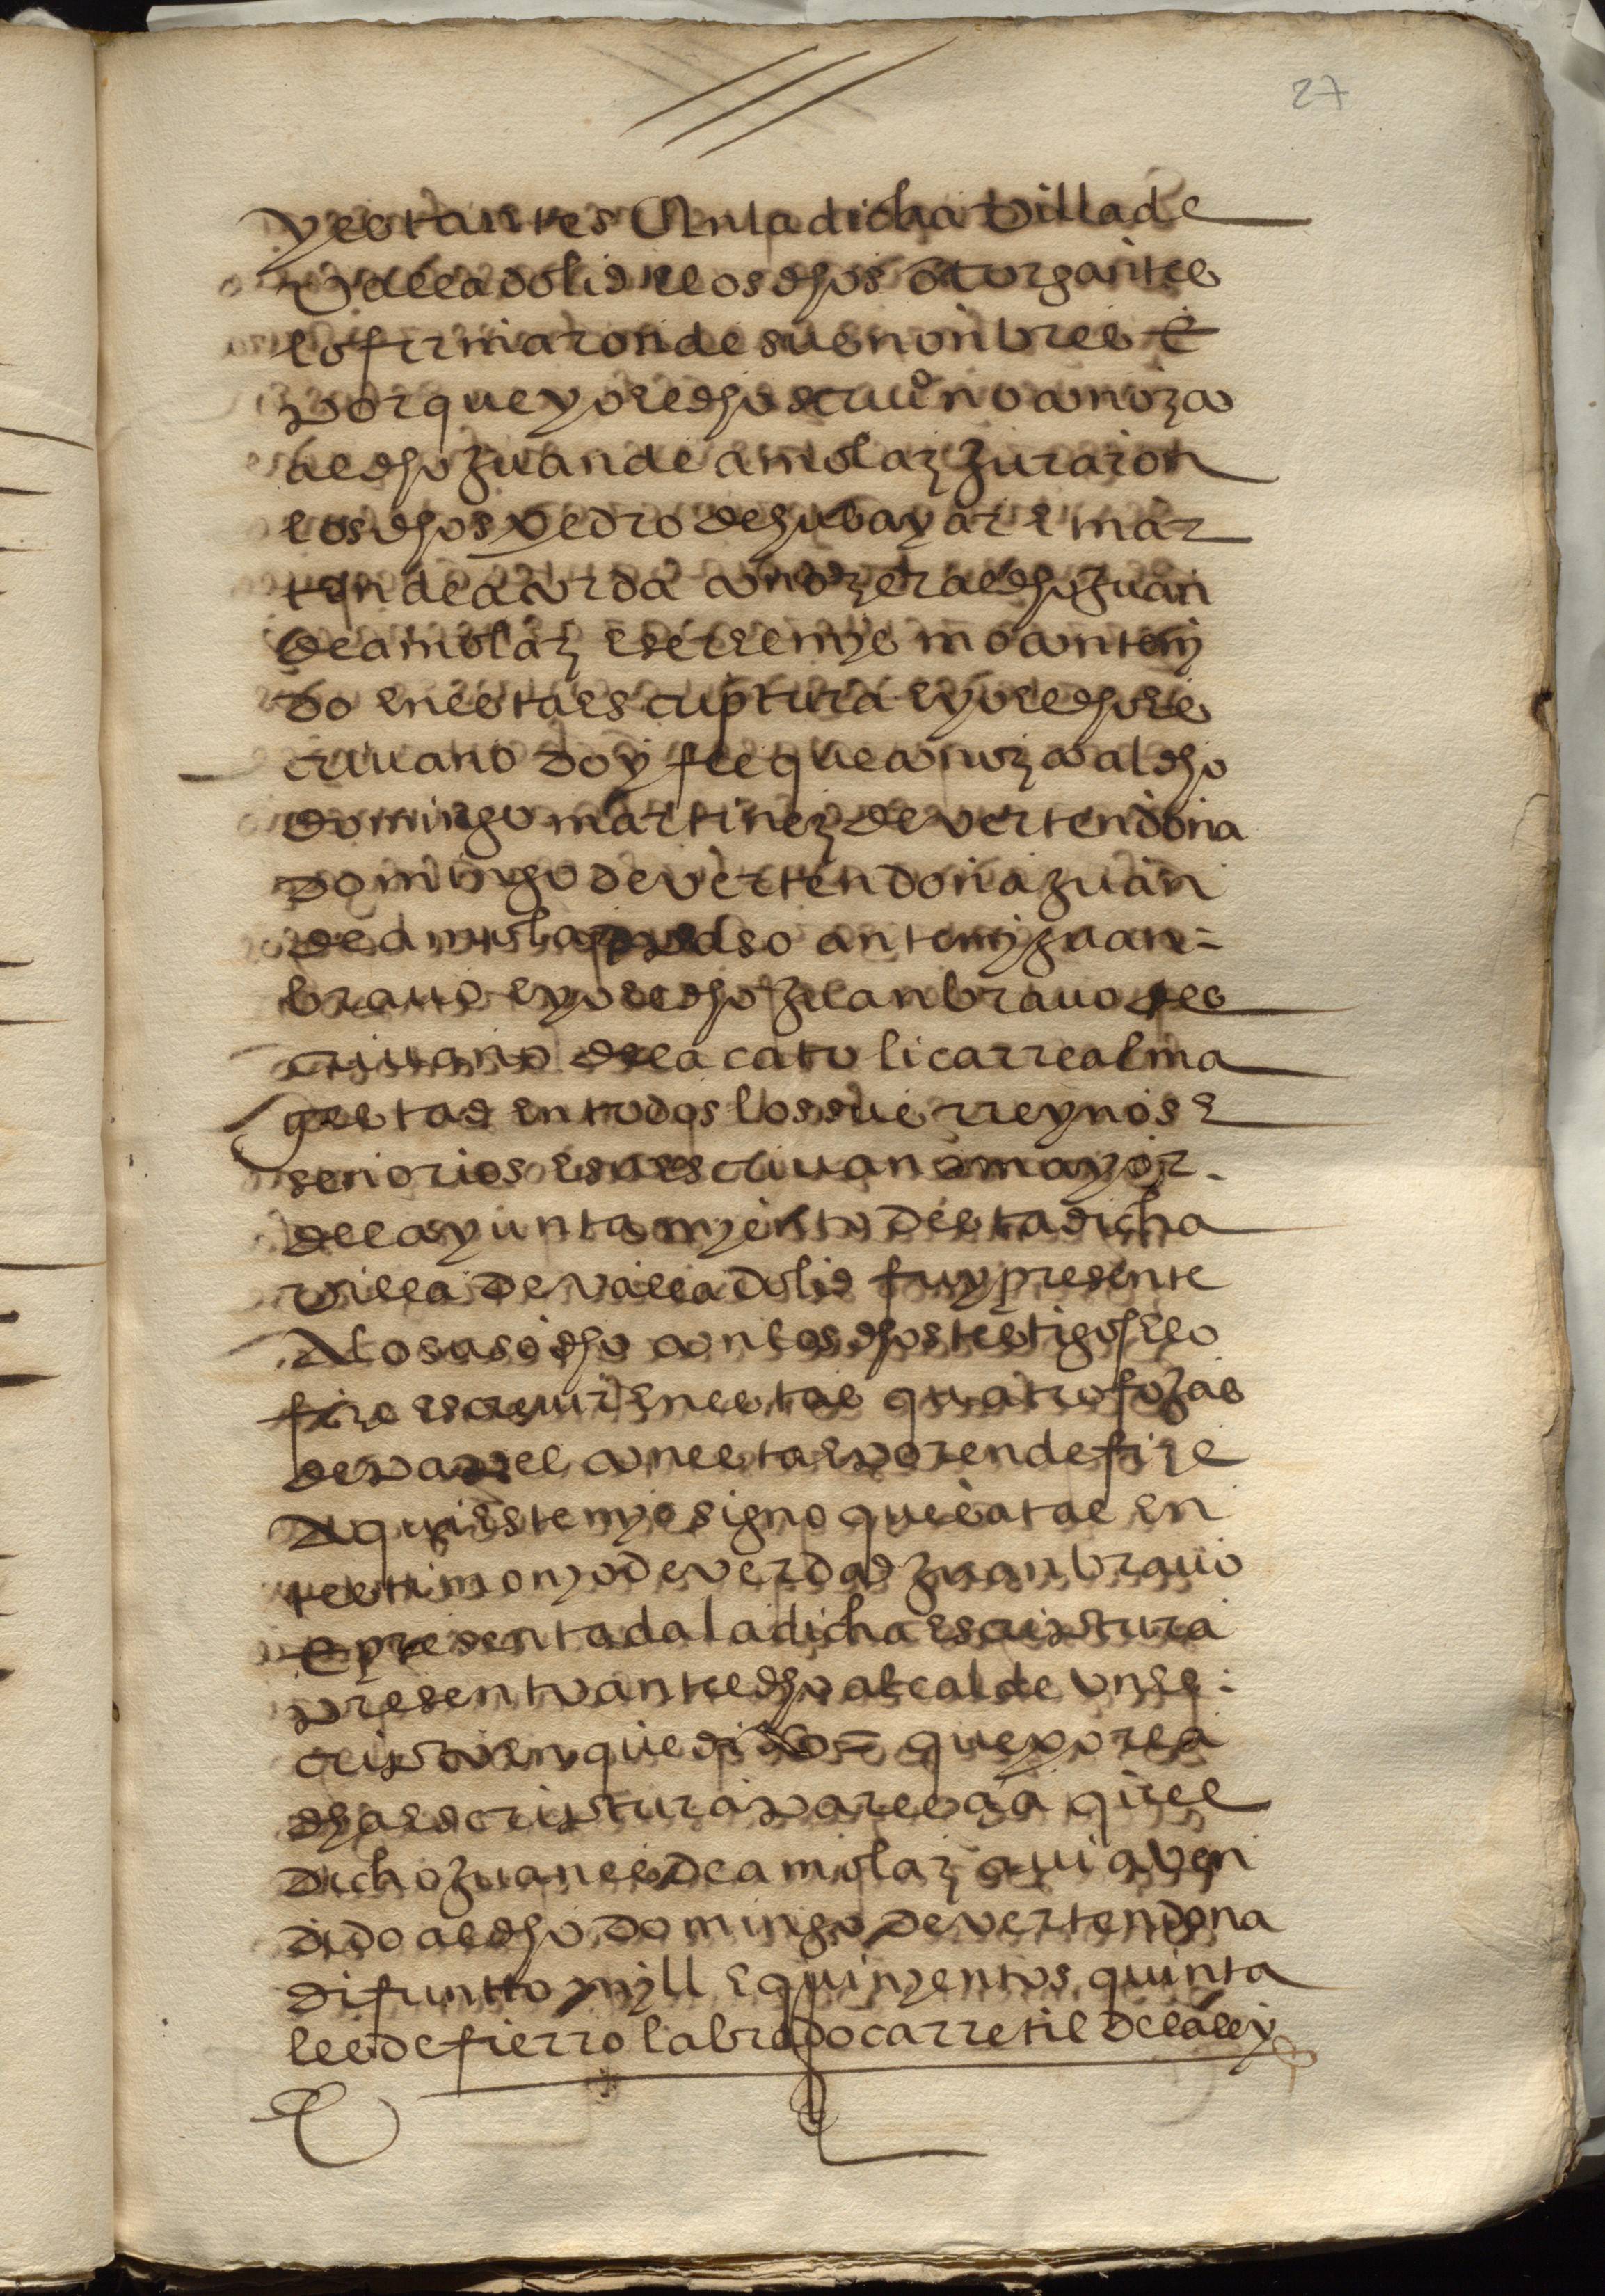 27
y estantes en la dicha villa de
valladolid e los dhos otorgantes
lo firmaron de sus nonbres E
porque yo el dho scriuo no conozco
al dho Juan de amolaz Juraron
los dhos pedro de hubayar e mar
tin de acorda conozer al dho Juan
de amolaz e ser el mysmo conteny
do en esta escriptura e yo el dho es
criuano doy fee que conozco al dho
domingo martinez de vertendona
domingo de vertendona Juan
de amolaz paso ante my juan =
brauo e yo el dho Juan brauo es
criuano de la catolica rreal ma
gestad en todos los sus rreynos e
senorios e su escriuano mayor
del ayuntamyento desta dicha
villa de valladolid fuy presente
A lo suso dho con los dhos testigos e lo
fize escreuir en estas quatro fojas
de papel con esta e por ende fize
Aqui este myo signo que es a tal en
testimonyo de verdad Juan brauo
E presentada la dicha escriptura
presento ante el dho alcalde vn es:
cripto en que dixo = que por la
dha escriptura paresçia quel
dicho Juanes de amolaz auia ven
dido al dho domingo de vertendona
difuntto myll e quinyentos quinta
les de fierro labrado carretil de la ley